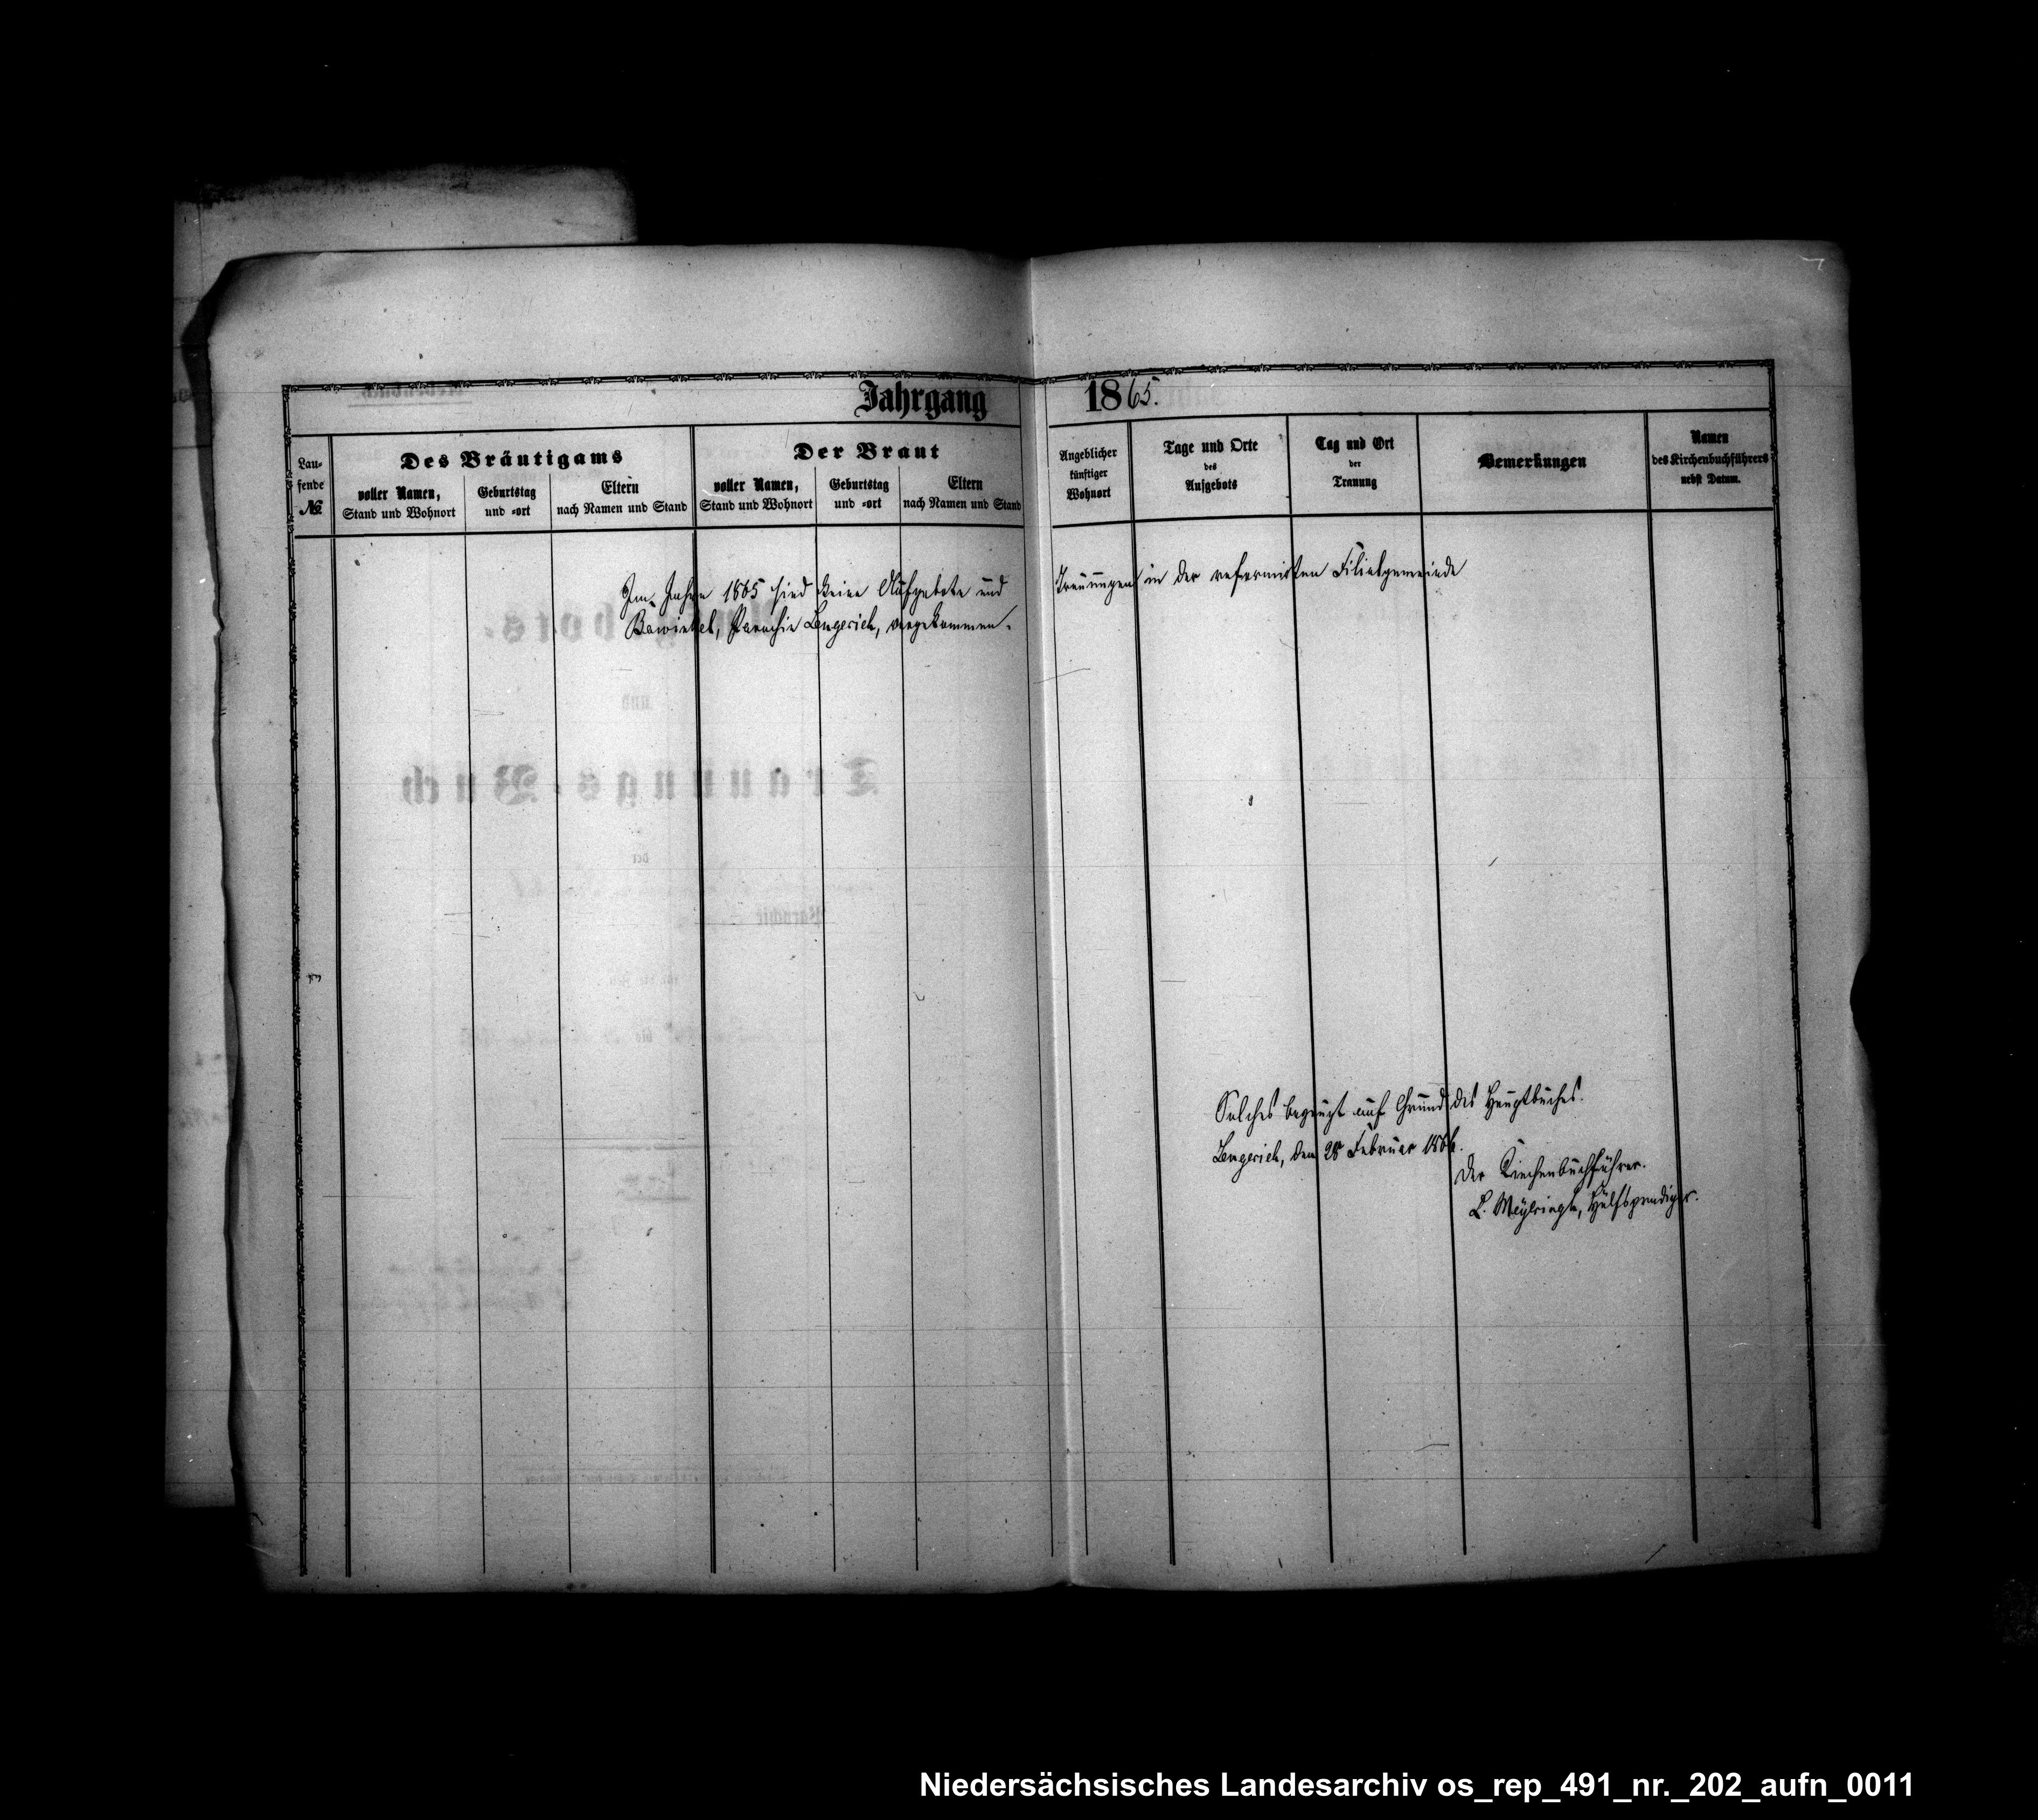 Jahrgang 1865.
Lau-
fende
№
Des Bräutigams
voller Namen,
Stand und Wohnort
Geburtstag
und -ort
Eltern
nach Namen und Stand
Der Braut
voller Namen,
Stand und Wohnort
Geburtstag
und -ort
Eltern
nach Namen und Stand
Angeblicher
künftiger
Wohnort
Tage und Orte
des
Aufgebots
Tag und Ort
der
Trauung
Bemerkungen
Namen
des Kirchenbuchführers
nebst Datum.
Im Jahre 1865 sind keine Aufgebote und Trauungen in der reformirten Filialgemeinde
Bawinkel, Parochie Lengerich, vorgekommen.
Solches bezeugt auf Grund des Hauptbuches.
Lengerich, den 28 Februar 1866.
Der Kirchenbuchführer.
L. Hülfsprediger.
Niedersächsisches Landesarchiv os_rep_491_nr._202_aufn_0011